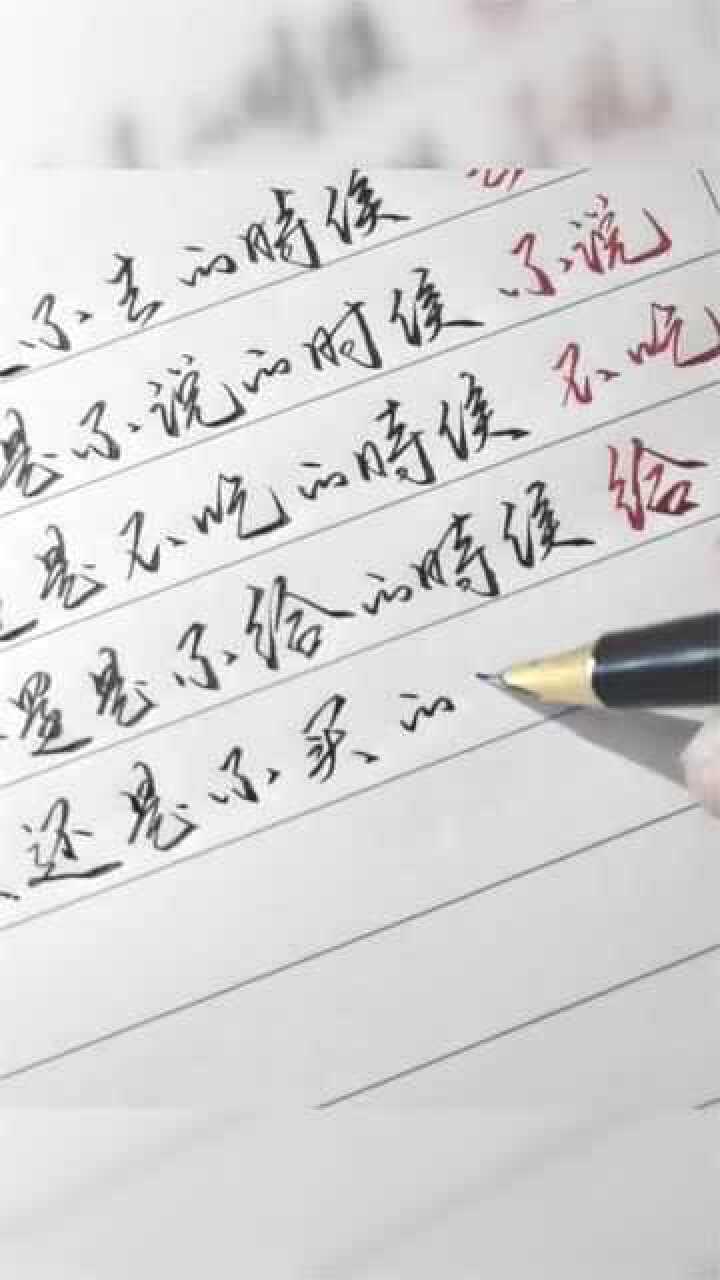 不去的時候
是不说的时候 不说
是不吃的時候 不吃
還是不给的時候 给
还是不买的